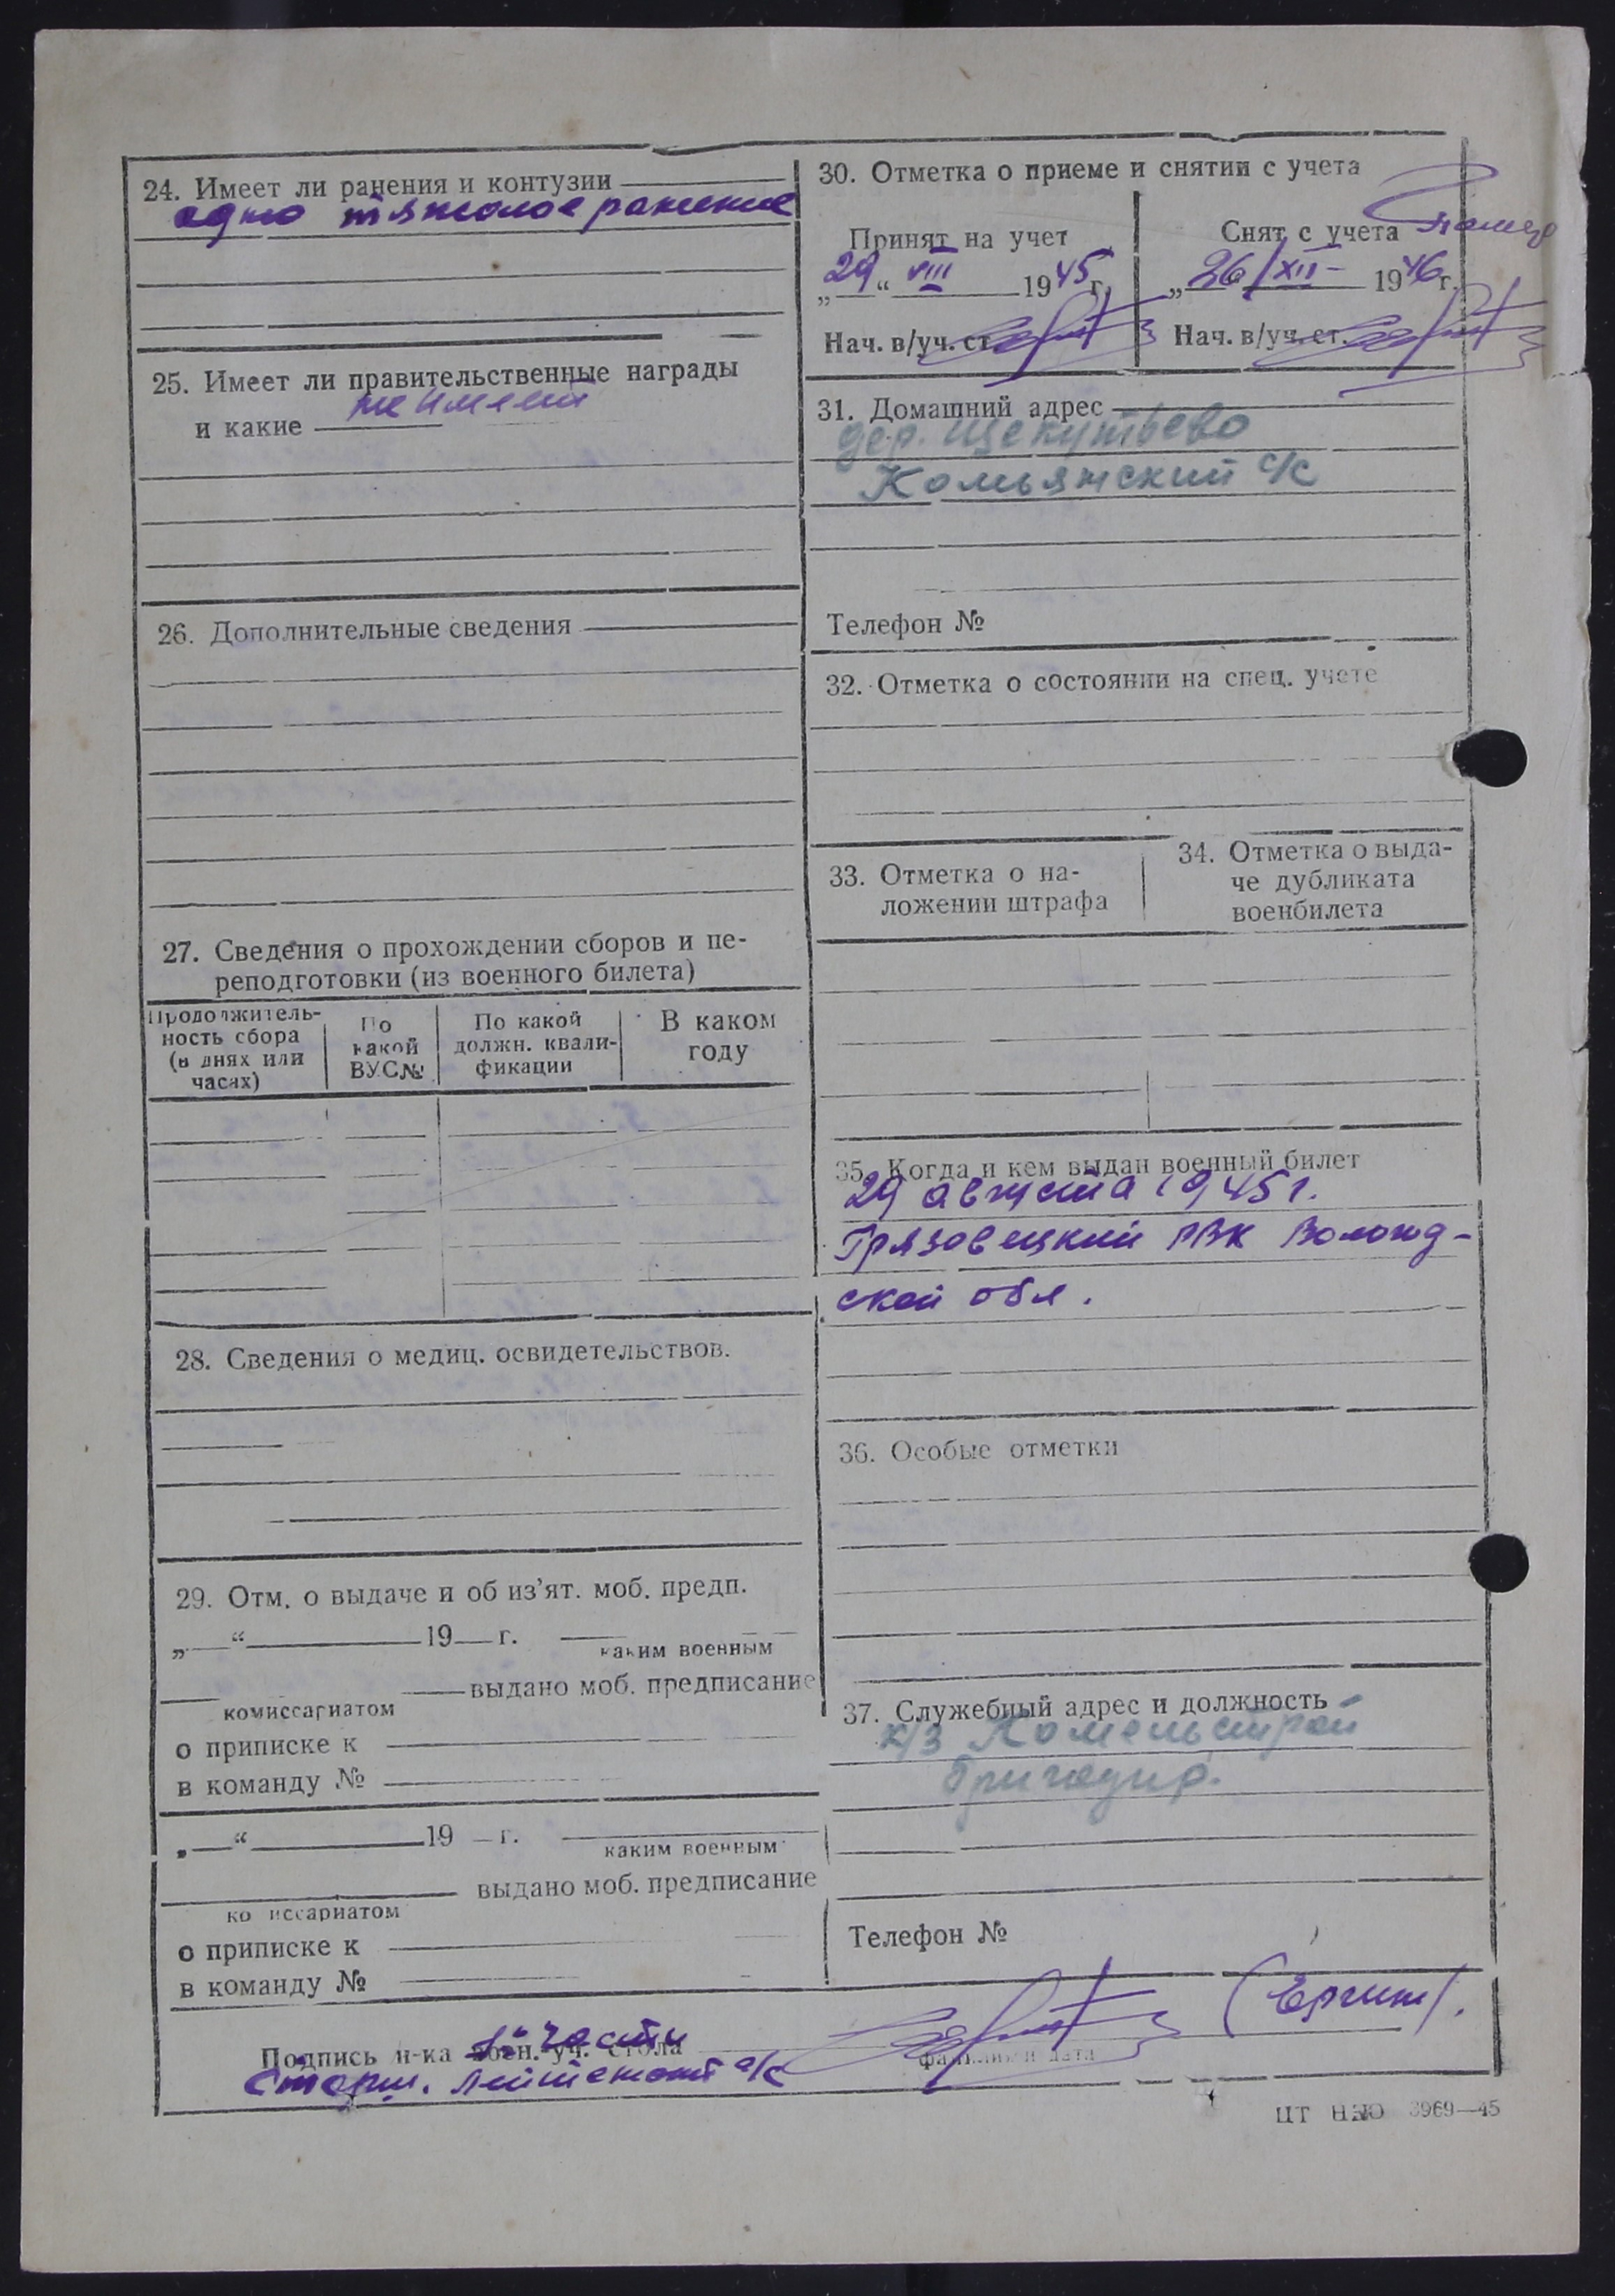 24. Имеет ли ранения и контузии
одно тяжолое ранение
25. Имеет ли правительственные награды
не имеет
и какие
26. Дополнительные сведения
27. Сведения о прохождении сборов и пе-
реподготовки (из военного билета)
Продолжитель-
ность сбора
(в днях или
часах)
По
какой
ВУС№
По какой
должн. квали-
фикации
В каком
году
28. Сведения о медиц. освидетельствов.
29. Отм. о выдаче и об из’ят. моб. предп.
„ “ 19 г.
каким военным
выдано моб. предписание
комиссариатом
о приписке к
в команду №
„ “ 19 г.
каким военным
выдано моб. предписание
ко иссариатом
о приписке к
в команду №
30. Отметка о приеме и снятии с учета
Принят на учет
„29“ VIII 1945г.
Нач. в/уч. ст.
Снят с учета
„26/XII- 1946г.
Нач. в/уч. ст.
31. Домашний адрес
дер. Щекутьево
Комьянский с/с
Телефон №
32. Отметка о состоянии на спец. учете
33. Отметка о на-
ложении штрафа
34. Отметка о выда-
че дубликата
военбилета
35. Когда и кем выдан военный билет
29 августа 1945г.
Грязовецкий РВК Вологод-
ской обл.
36. Особые отметки
37. Служебный адрес и должность
к/з
бригадир.
Телефон №
части
Подпись н-ка воен. уч. стола
Старш. лейтенант а/с
фамилия и дата
ЦТ 3969—45